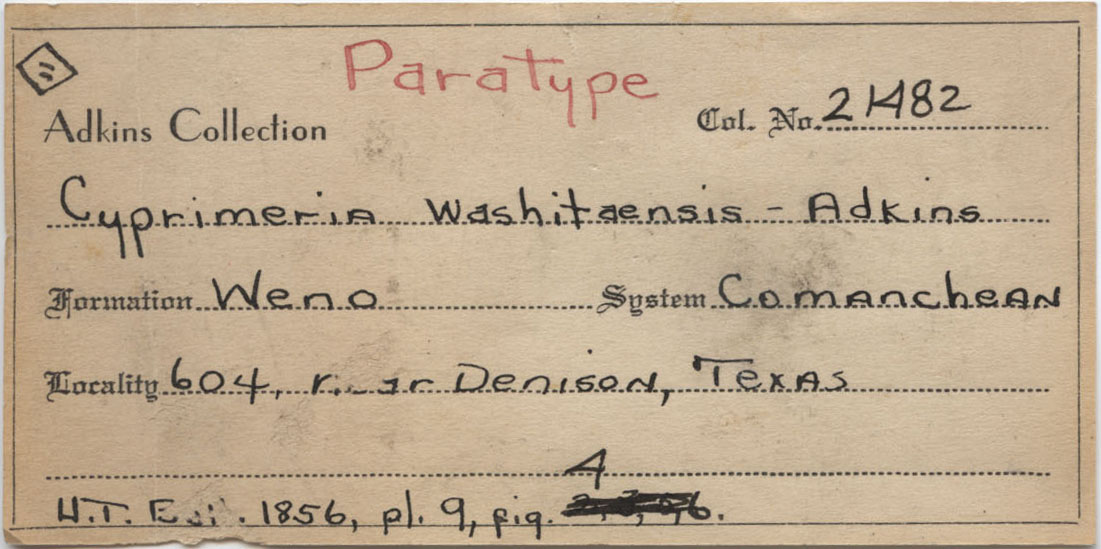 Paratype
Adkins Collection
Col. No. 21482
Cyprimeria washitaensis - Adkins
Formation Weno
System Comanchean
Locality 604, Denison, Texas
4
U.T. 1856, pl. 9, fig. 6.